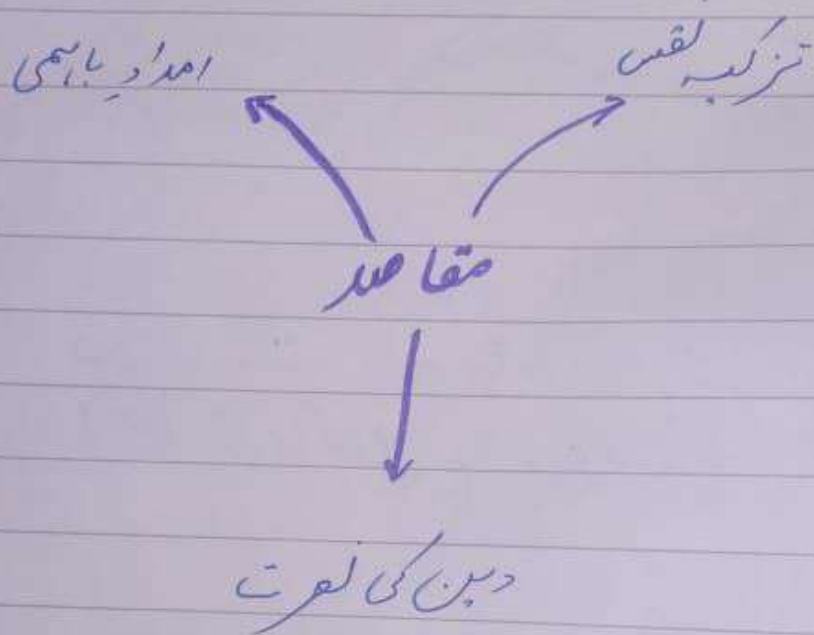 تزکیہ نفس
امدادِ باہمی
مقاصد
دین کی نصرت